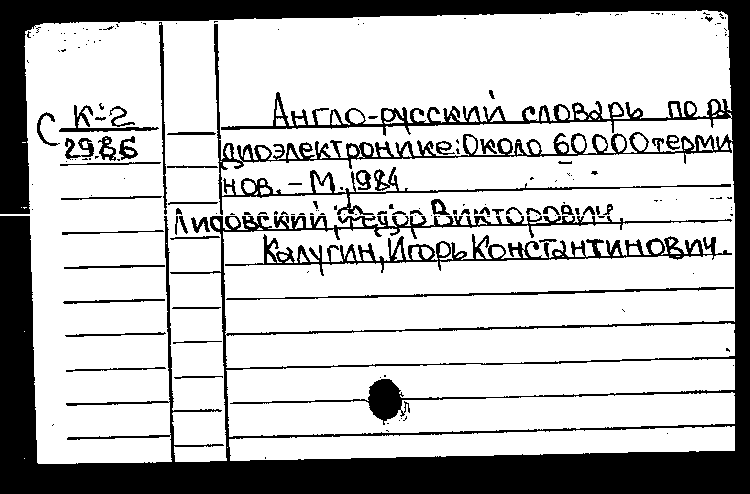 С К-2
2986
Англо-русский словарь по ра
диоэлектронике: Около 60000 терми
нов. – М., 1984.
Лисовский, Федор Викторович,
Калугин, Игорь Константинович.